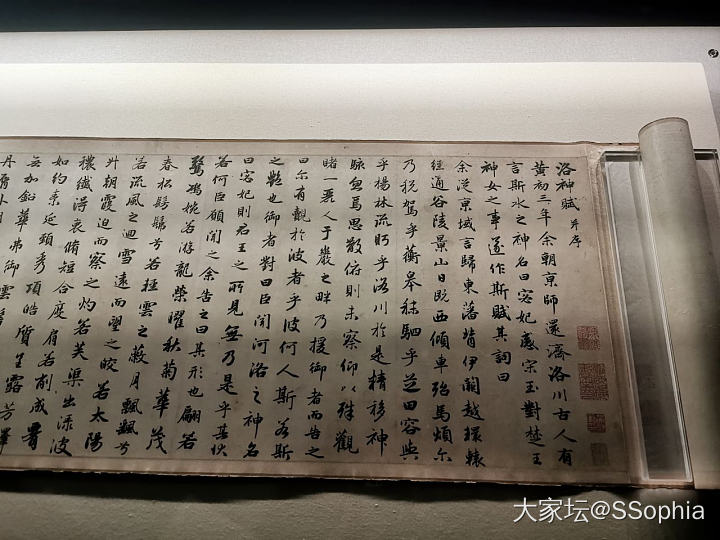 洛神賦 并序
黃初三年余朝京師還濟洛川古人有
言斯水之神名曰宓妃感宋玉對楚王
神女之事遂作斯賦其詞曰
余從京域言歸東藩背伊闕越轘轅
經通谷陵景山日既西傾車殆馬煩尓
乃稅駕乎蘅皋秣駟乎芝田容與
乎楊林流眄乎洛川於是精移神
駭忽焉思散俯則未察仰以殊觀
睹一麗人于巖之畔乃援御者而告之
曰尓有覿於彼者乎彼何人斯若斯
之豔也御者對曰臣聞河洛之神名
曰宓妃則君王之所見無乃是乎其狀
若何臣願聞之余告之曰其形也翩若
驚鴻婉若游龍榮曜秋菊華茂
春松髣髴兮若輕雲之蔽月飄飄兮
若流風之迴雪遠而望之皎若太陽
升朝霞迫而察之灼若芙蕖出淥波
穠纖得衷脩短合度肩若削成
如約素延頸秀項皓質呈露芳澤
無加鉛華弗御雲髻
丹脣外朗
大家坛@SSophia